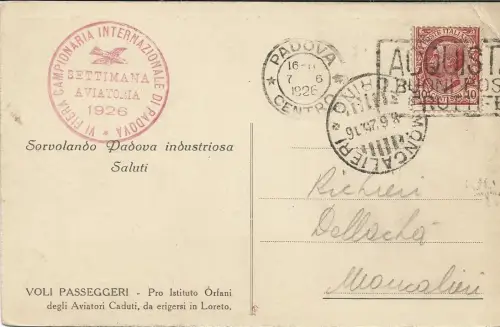 VI FIERA CAMPIONARIA INTERNAZIONALE DI PADOVA
SETTIMANA
AVIATORIA
1926
PADOVA
16-
7 6
1926
CENTRO
MONCALIERI
Sorvolando Padova industriosa
Saluti
Richieri
Dellachà
Moncalieri
VOLI PASSEGGERI - Pro Istituto Orfani
degli Aviatori Caduti, da erigersi in Loreto.